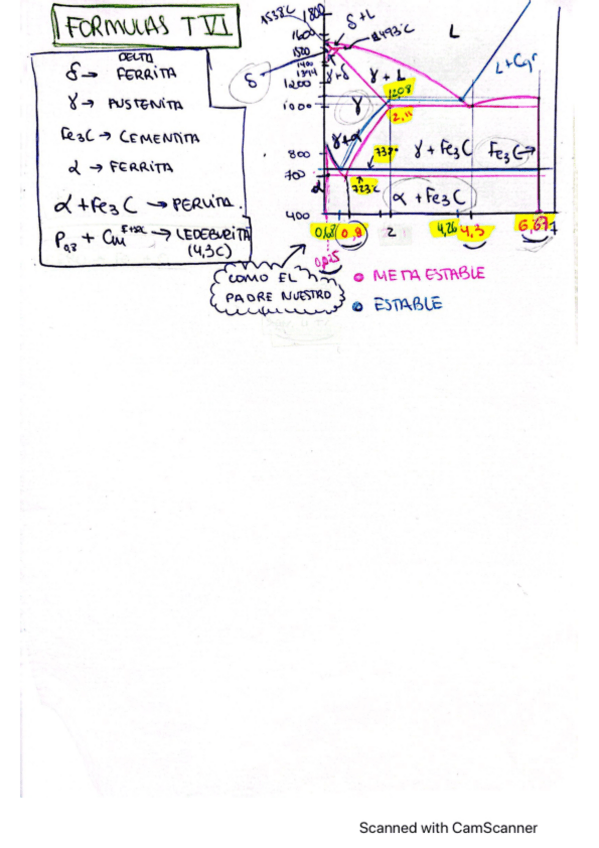 FORMULAS T VI
DELTA
δ → FERRITA
γ → AUSTENITA
Fe3C → CEMENTITA
α → FERRITA
α + Fe3C → PERLITA.
P0,8 + Cm → LEDEBURITA
(4,3C)
1538°C
1800
δ+L
1600
1493°C
L
1500
1400
1394
γ+δ
γ + L
L+Cgr
δ
1200
γ
1000
2,11
γ+α
738°
γ + Fe3C
Fe3C →
800
700
723°C
α
α + Fe3C
400
0,8
2
4,26
4,3
6,67
0,025
COMO EL
PADRE NUESTRO
META ESTABLE
ESTABLE
Scanned with CamScanner